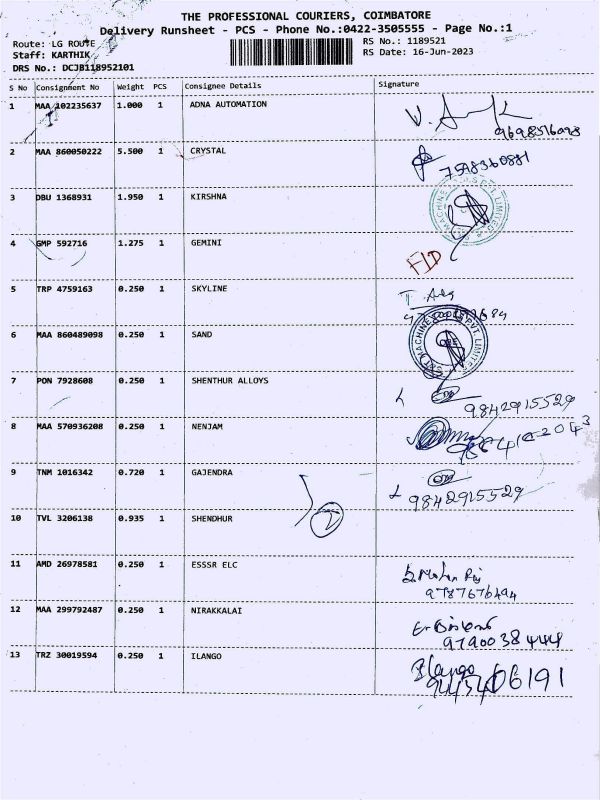 THE PROFESSIONAL COURIERS, COIMBATORE
Delivery Runsheet - PCS - Phone No.:0422-3505555 - Page No.:1
Route: LG ROUTE RS No.: 1189521
Staff: KARTHIK RS Date: 16-Jun-2023
DRS No.: DCJB118952101
S No Consignment No Weight PCS Consignee Details Signature
1 MAA 102235637 1.000 1 ADNA AUTOMATION
2 MAA 860050222 5.500 1 CRYSTAL
7598360881
3 DBU 1368931 1.950 1 KIRSHNA
4 GMP 592716 1.275 1 GEMINI
5 TRP 4759163 0.250 1 SKYLINE
6 MAA 860489098 0.250 1 SAND
7 PON 7928608 0.250 1 SHENTHUR ALLOYS
9842915529
8 MAA 570936208 0.250 1 NENJAM
9 TNM 1016342 0.720 1 GAJENDRA
9842915529
10 TVL 3206138 0.935 1 SHENDHUR
11 AMD 26978581 0.250 1 ESSSR ELC
9787676494
12 MAA 299792487 0.250 1 NIRAKKALAI
9790038444
13 TRZ 30019594 0.250 1 ILANGO
Ilango